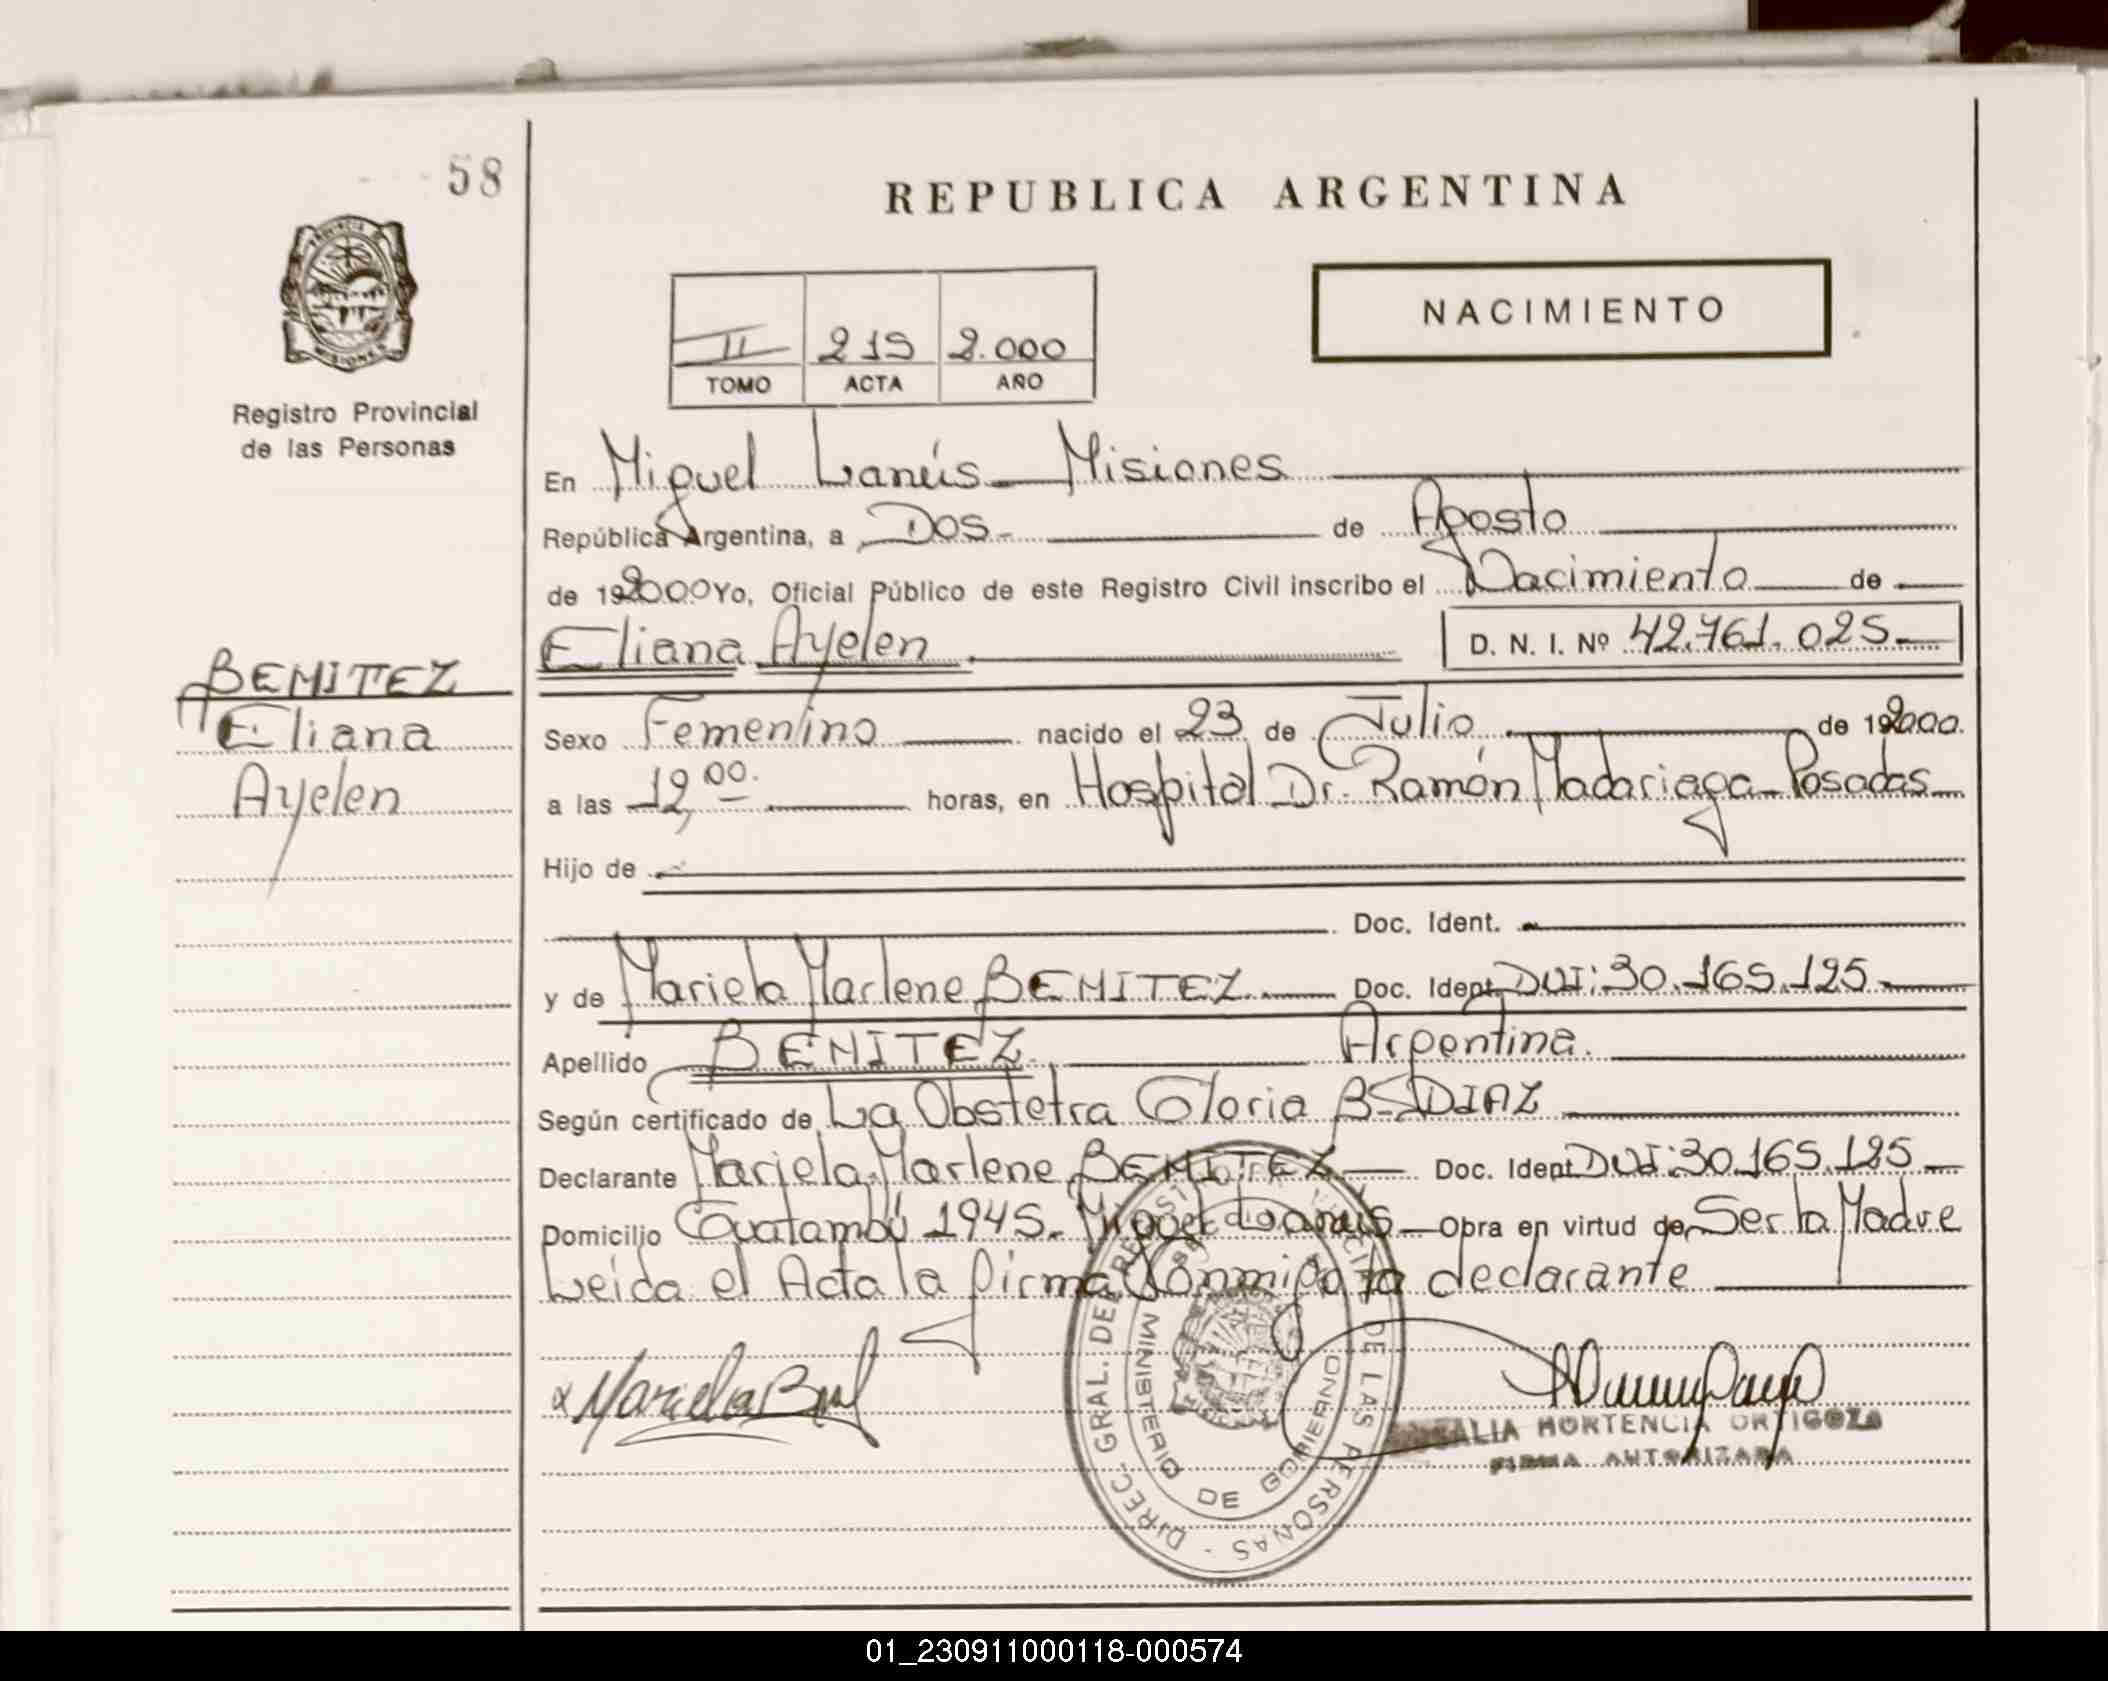 58
REPUBLICA ARGENTINA
PROVINCIA DE MISIONES
Registro Provincial
de las Personas
II 215 2.000
TOMO ACTA AÑO
NACIMIENTO
En Miguel Lanús - Misiones
República Argentina, a Dos.- de Agosto
de 192000 Yo, Oficial Público de este Registro Civil inscribo el Nacimiento de
Eliana Ayelen. D. N. I. Nº 42.761.025.-
BENITEZ
Eliana
Ayelen
Sexo Femenino nacido el 23 de Julio de 192000.
a las 12,00. horas, en Hospital Dr. Ramón Madariaga - Posadas
Hijo de
Doc. Ident.
y de Mariela Marlene BENITEZ. Doc. Ident. DNI: 30.165.125
Apellido BENITEZ. Argentina.
Según certificado de La Obstetra Gloria B. DIAZ
Declarante Mariela Marlene BENITEZ Doc. Ident DNI: 30.165.125
Domicilio Guatambú 1945. Miguel Lanús Obra en virtud de Ser la Madre
Leida el Acta la firma Conmigo la declarante
Mariela
ROSALIA HORTENCIA ORTIGOZA
FIRMA AUTORIZADA
DIREC. GRAL. DEL REGISTRO PROVINCIAL DE LAS PERSONAS -
MINISTERIO DE GOBIERNO
01_230911000118-000574